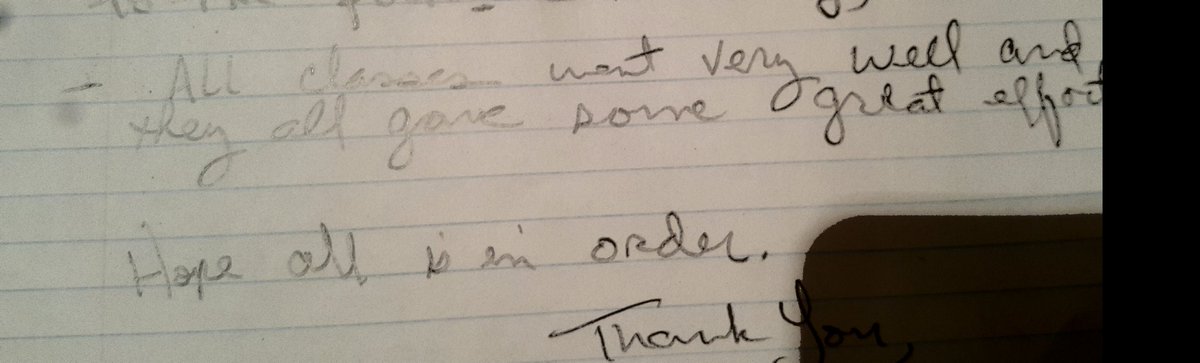 - All classes went very well and
they all gave some great effort
Hope all is in order.
Thank You,